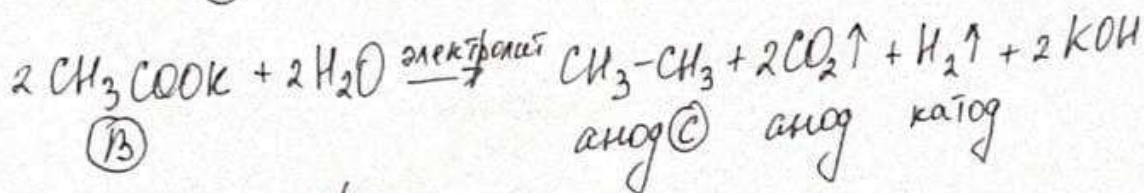 2 CH₃COOK + 2H₂O электролит → CH₃-CH₃ + 2CO₂↑ + H₂↑ + 2 KOH
B анод C анод катод